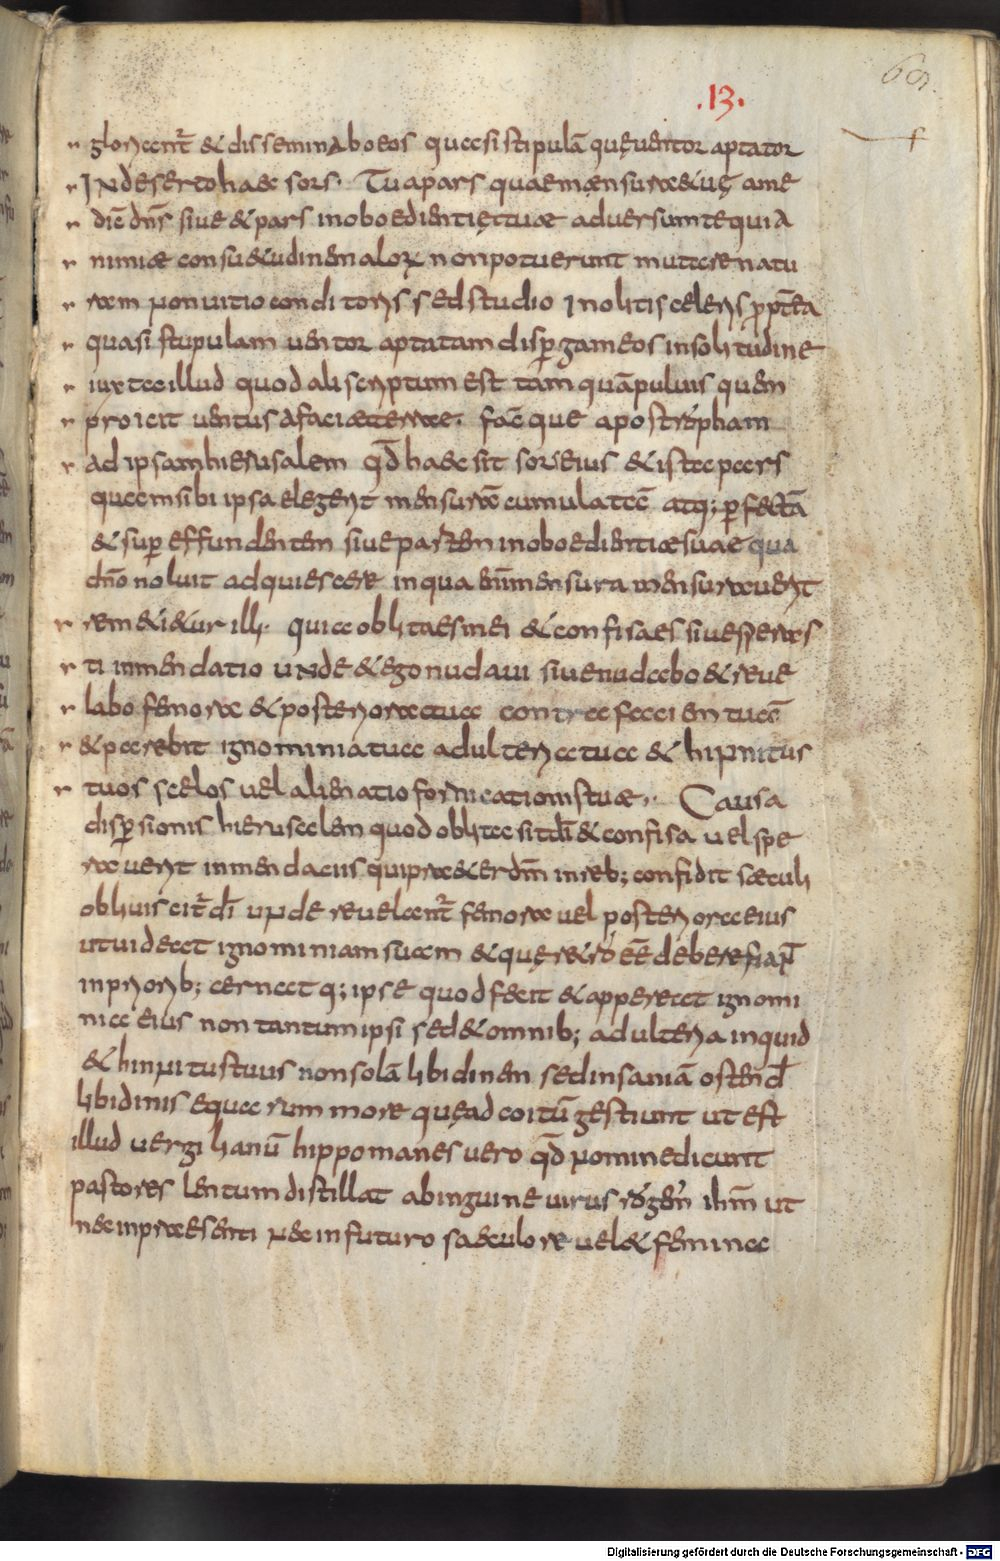 69.
.13.
gloriantr̄ & disseminabo eos quasi stipulā quę uentor aptator
IN deserto haec sors. Tu a pars quae mænsuræ & uę a me
diē dn̄s siue & pars inoboedientię tuae aduersum te quia
nimiæ consu&udinen aloꝝ non potuerunt mutare natu
ram non uitio conditoris sed studio Inolitis celeris ꝓpt̄ea
quasi stupulam uentor aptatam dispergam eos in solitudine
iuxta illud quod ali scriptum est tam quā puluis quen
proicit uentus a faciæ terrae. facē que apostropham
ad ipsam hierusalem qd̄ haec sit sor eius & ista pars
quam sibi ipsa elegerit mensurā cumulatā atq; ꝑfectā
& super effundenten siue parten inoboedientiæ suae qua
dn̄o noluit adquiescere in qua enī mensura mensurauerit
remeti&ur illi. quia oblita es mei & confisa es siue speras
ti in mendatio UNde & ego nudaui siue nudabo & reue
labo femora & posteriora tua contra faciem tuā
& parebit ignominia tua adulteria tua & hipnitus
tuos scelos uel alienatio fornicationis tuæ. Causa
dispersionis hierusalem quod oblita sit dī & confisa uel spe
rauerit in mendaciis qui præter dm̄ in reb; confidit sæculi
obliuiscitr̄ dī unde reuelantr̄ femora uel posteriora eius
ut uideat ignominiam suam
in priorib; cernat q; ipse quod fecit & appareat ignomi
nia eius non tantum ipsi sed & omnib; adultera inquid
& hinnitus tuus non solā libidinen sed insaniā ostend̄
libidinis equarum more quę ad coitū gestiunt ut est
illud uergilianū hippomanes uero qd̄ nomine dicunt
pastores lentum distillat ab inguine uirus
nec in præsenti nec in futuro saeculo re uel& feminae
Digitalisierung gefördert durch die Deutsche Forschungsgemeinschaft - DFG